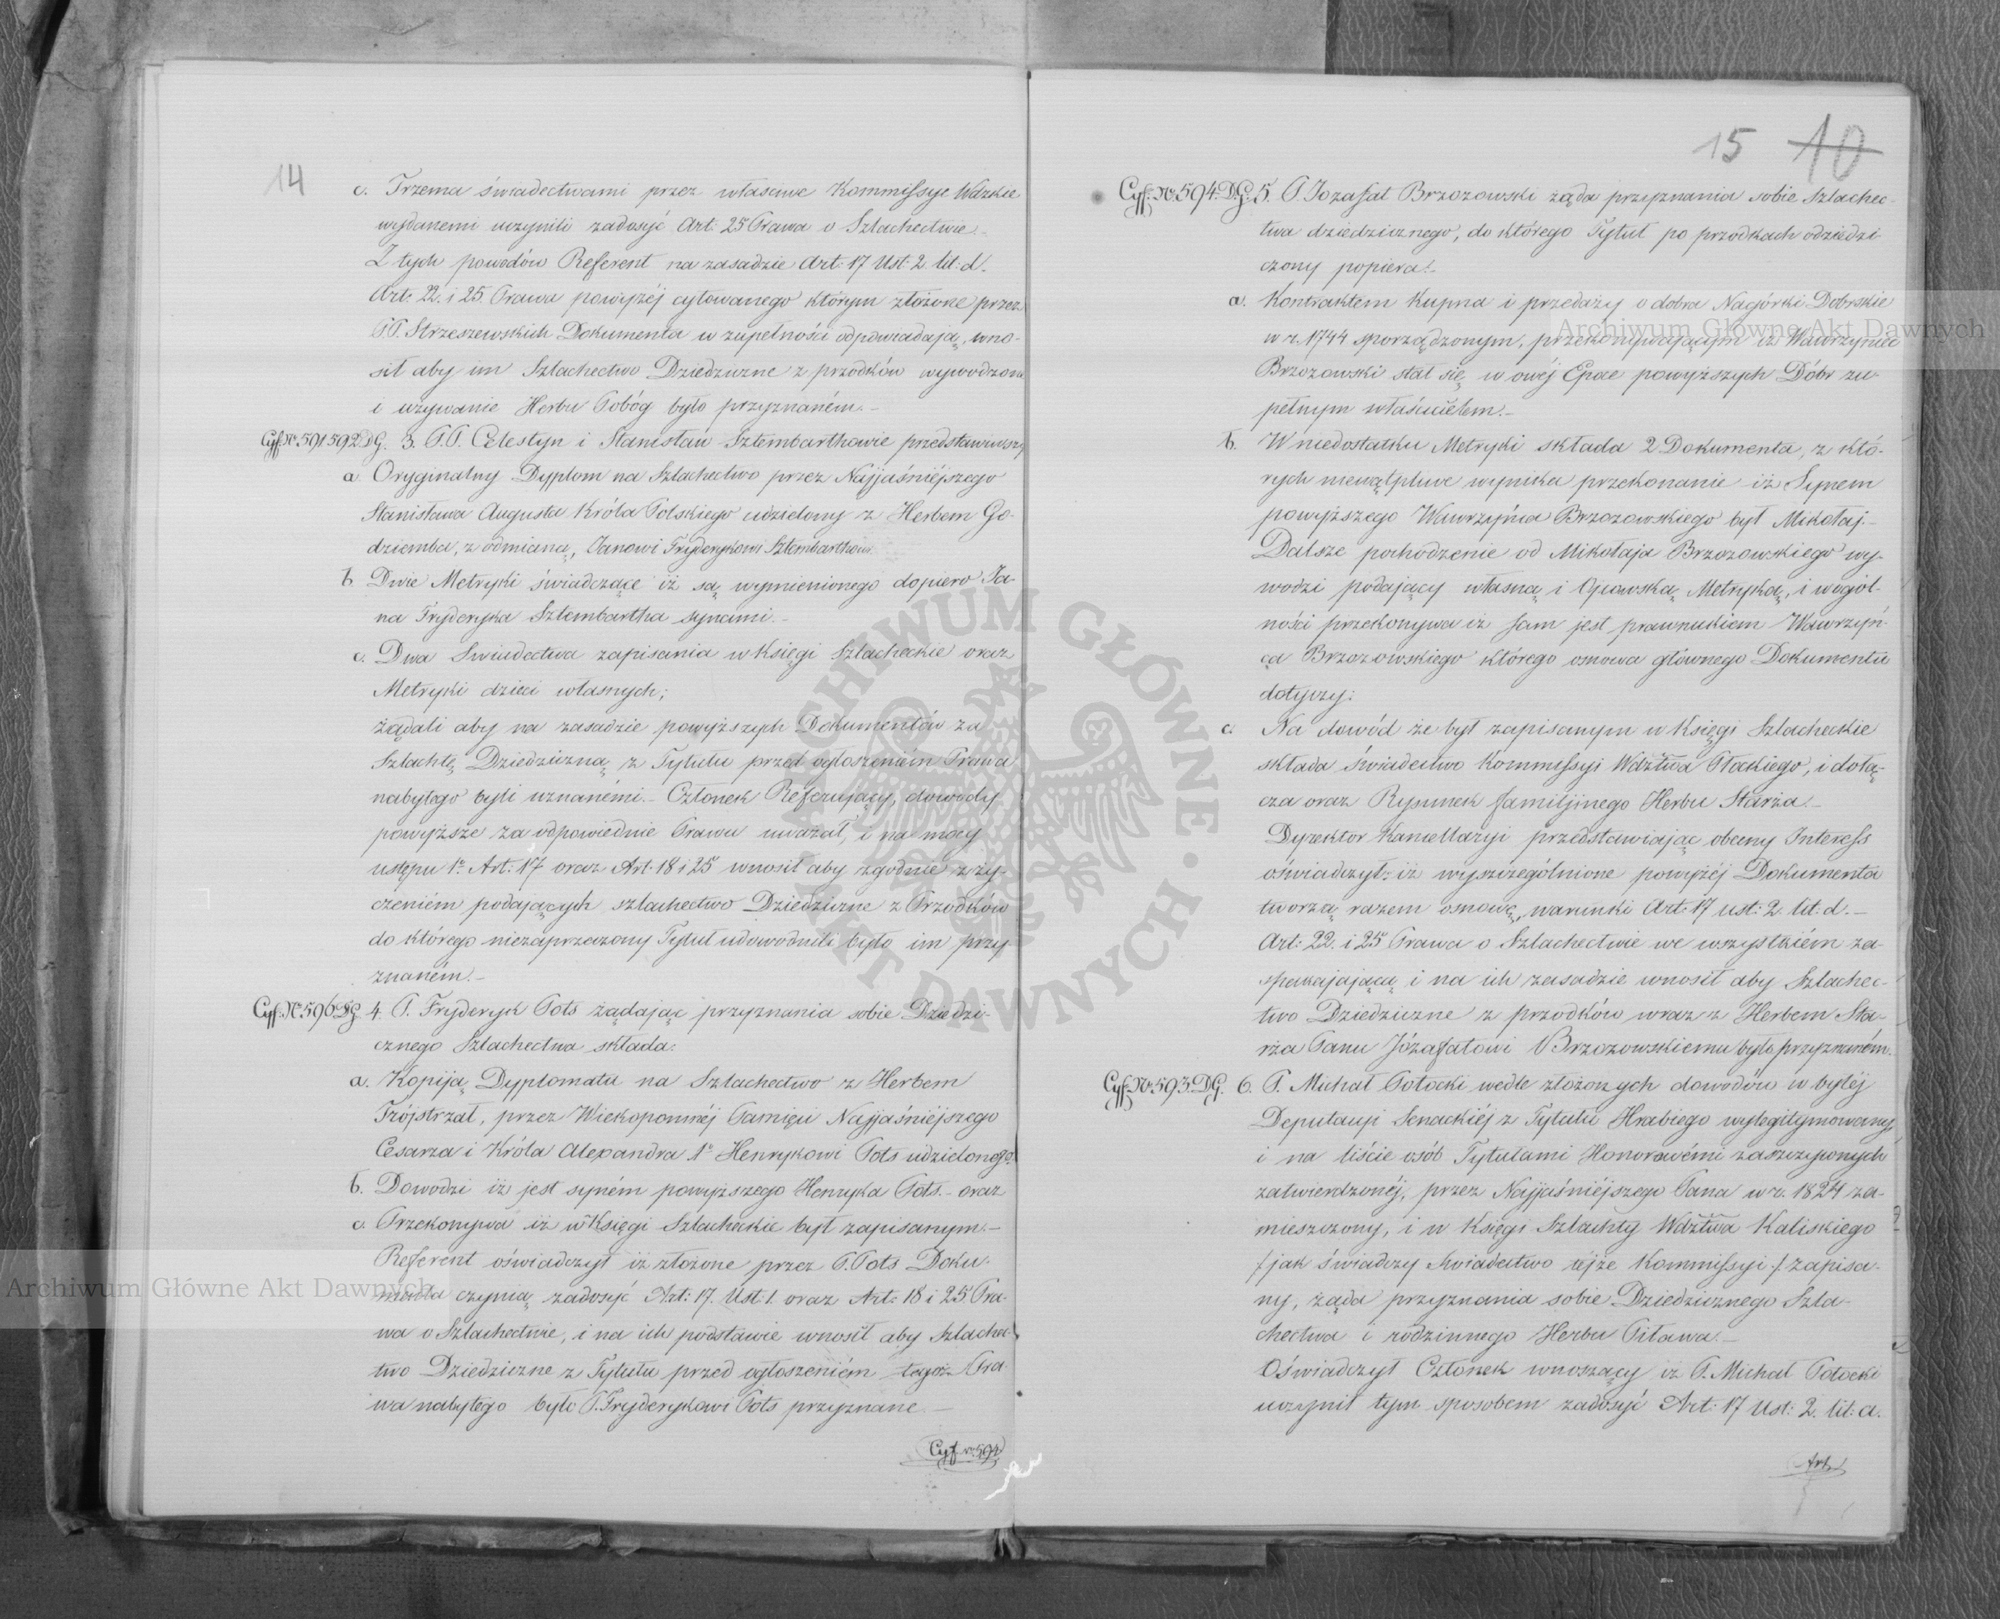 14
c. Trzema świadectwami przez właściwe Kommissye Wdzkie
wydanemi uczynili zadosyć Art: 25 Prawa o Szlachectwie.
Z tych powodów Referent na zasadzie Art: 17 Ust: 2. lit: d.
Art: 22. i 25. Prawa powyżéj cytowanego którym złożone przez
PP. Strzeszewskich Dokumenta w zupełności odpowiadają, wno-
sił aby im Szlachectwo Dziedziczne z przodków wywodzone
i używanie Herbu Pobóg było przyznaném.
Cyf: Nr. 591 592 DG. 3. PP. Celestyn i Stanisław Sztembarthowie przedstawiwszy
a Oryginalny Dyplom na Szlachectwo przez Najjaśniéjszego
Stanisława Augusta Króla Polskiego udzielony z Herbem Go-
dziemba, z odmianą, Janowi Fryderykowi Sztembarthow.
b. Dwie Metryki świadczące iż są wymienionego dopiero Ja-
na Fryderyka Sztembartha synami.
c. Dwa Swiadectwa zapisania w Księgi Szlacheckie oraz
Metryki dzieci własnych;
żądali aby na zasadzie powyższych Dokumentów za
Szlachtę Dziedziczną z Tytułu przed ogłoszeniém Prawa
nabytego byli uznanémi. Członek Referujący, dowody
powyższe za odpowiednie Prawu uważał, i na mocy
ustępu 1o Art: 17 oraz Art. 18 i 25 wnosił aby zgodnie z ży-
czeniém podających szlachectwo Dziedziczne z Przodków
do którego niezaprzeczony Tytuł udowodnili było im przy
znaném.
Cyf: Nr. 596 DG. 4. P. Fryderyk Pots żądając przyznania sobie Dziedzi-
cznego Szlachectwa składa:
a. Kopiją Dyplomatu na Szlachectwo z Herbem
Trójstrzał, przez Wiekopomnéj Pamięci Najjaśniéjszego
Cesarza i Króla Alexandra 1o Henrykowi Pots udzielonego.
b. Dowodzi iż jest syném powyższego Henryka Pots. oraz
c. Przekonywa iż w Księgi Szlacheckie był zapisanym.
Referent oświadczył iż złożone przez P. Pots Doku-
menta czynią zadosyć Art: 17. Ust: 1. oraz Art: 18 i 25 Pra-
wa o Szlachectwie, i na ich podstawie wnosił aby Szlachec-
two Dziedziczne z Tytułu przed ogłoszeniém tegoż Pra-
wa nabytego było P. Fryderykowi Pots przyznane.
Cyf. nr. 594
15 10
Cyf: Nr. 594. DG. 5. P. Jozafat Brzozowski żąda przyznania sobie Szlachec-
twa dziedzicznego, do którego Tytuł po przodkach odziedzi-
czony popiera:
a. Kontraktem Kupna i przedaży o dobra Nagórki Dobrskie
w r. 1744 sporządzonym, przekonywającym iż Wawrzyniec
Brzozowski stał się w owéj Epoce powyższych Dóbr zu-
pełnym właścicielem.
b. W niedostatku Metryki składa 2 Dokumenta, z któ-
rych niewątpliwe wynika przekonanie iż Synem
powyższego Wawrzyńca Brzozowskiego był Mikołaj.
Dalsze pochodzenie od Mikołaja Brzozowskiego wy-
wodzi podający własną i Ojcowską Metryką, i wogól-
ności przekonywa iż sam jest prawnukiem Wawrzyń-
ca Brzozowskiego którego osnowa głównego Dokumentu
dotyczy:
c. Na dowód że był zapisanym w Księgi Szlacheckie
składa świadectwo Kommissyi Wdztwa Płockiego, i dołą-
cza oraz Rysunek familijinego Herbu Starża.
Dyrektor Kancellaryi przedstawiając obecny Interess
oświadczył: iż wyszczególnione powyżéj Dokumenta
tworzą razem osnowę, warunki Art: 17 ust: 2. lit: d.
Art: 22. i 25 Prawa o Szlachectwie we wszystkiém za-
spakajającą i na ich zasadzie wnosił aby Szlachec-
two Dziedziczne z przodków wraz z Herbem Sta-
rża Panu Józafatowi Brzozowskiemu było przyznaném.
Cyf: Nr. 593. DG. 6. P. Michał Potocki wedle złożonych dowodów w byłéj
Deputacyi Senackiéj z Tytułu Hrabiego wylegitymowany,
i na liście osób Tytułami Honorowémi zaszczyconych
zatwierdzonéj, przez Najjaśniéjszego Pana w r. 1824 za-
mieszczony, i w Księgi Szlachty Wdztwa Kaliskiego
/: jak świadczy świadectwo tejże Kommissyi :/ zapisa-
ny, żąda przyznania sobie Dziedzicznego Szla-
chectwa i rodzinnego Herbu Pilawa.
Oświadczył Członek wnoszący iż P. Michał Potocki
uczynił tym sposobem zadosyć Art: 17 Ust: 2. lit: a.
Art.
Archiwum Główne Akt Dawnych
Archiwum Główne Akt Dawnych
ARCHIWUM GŁÓWNE · AKT DAWNYCH ·